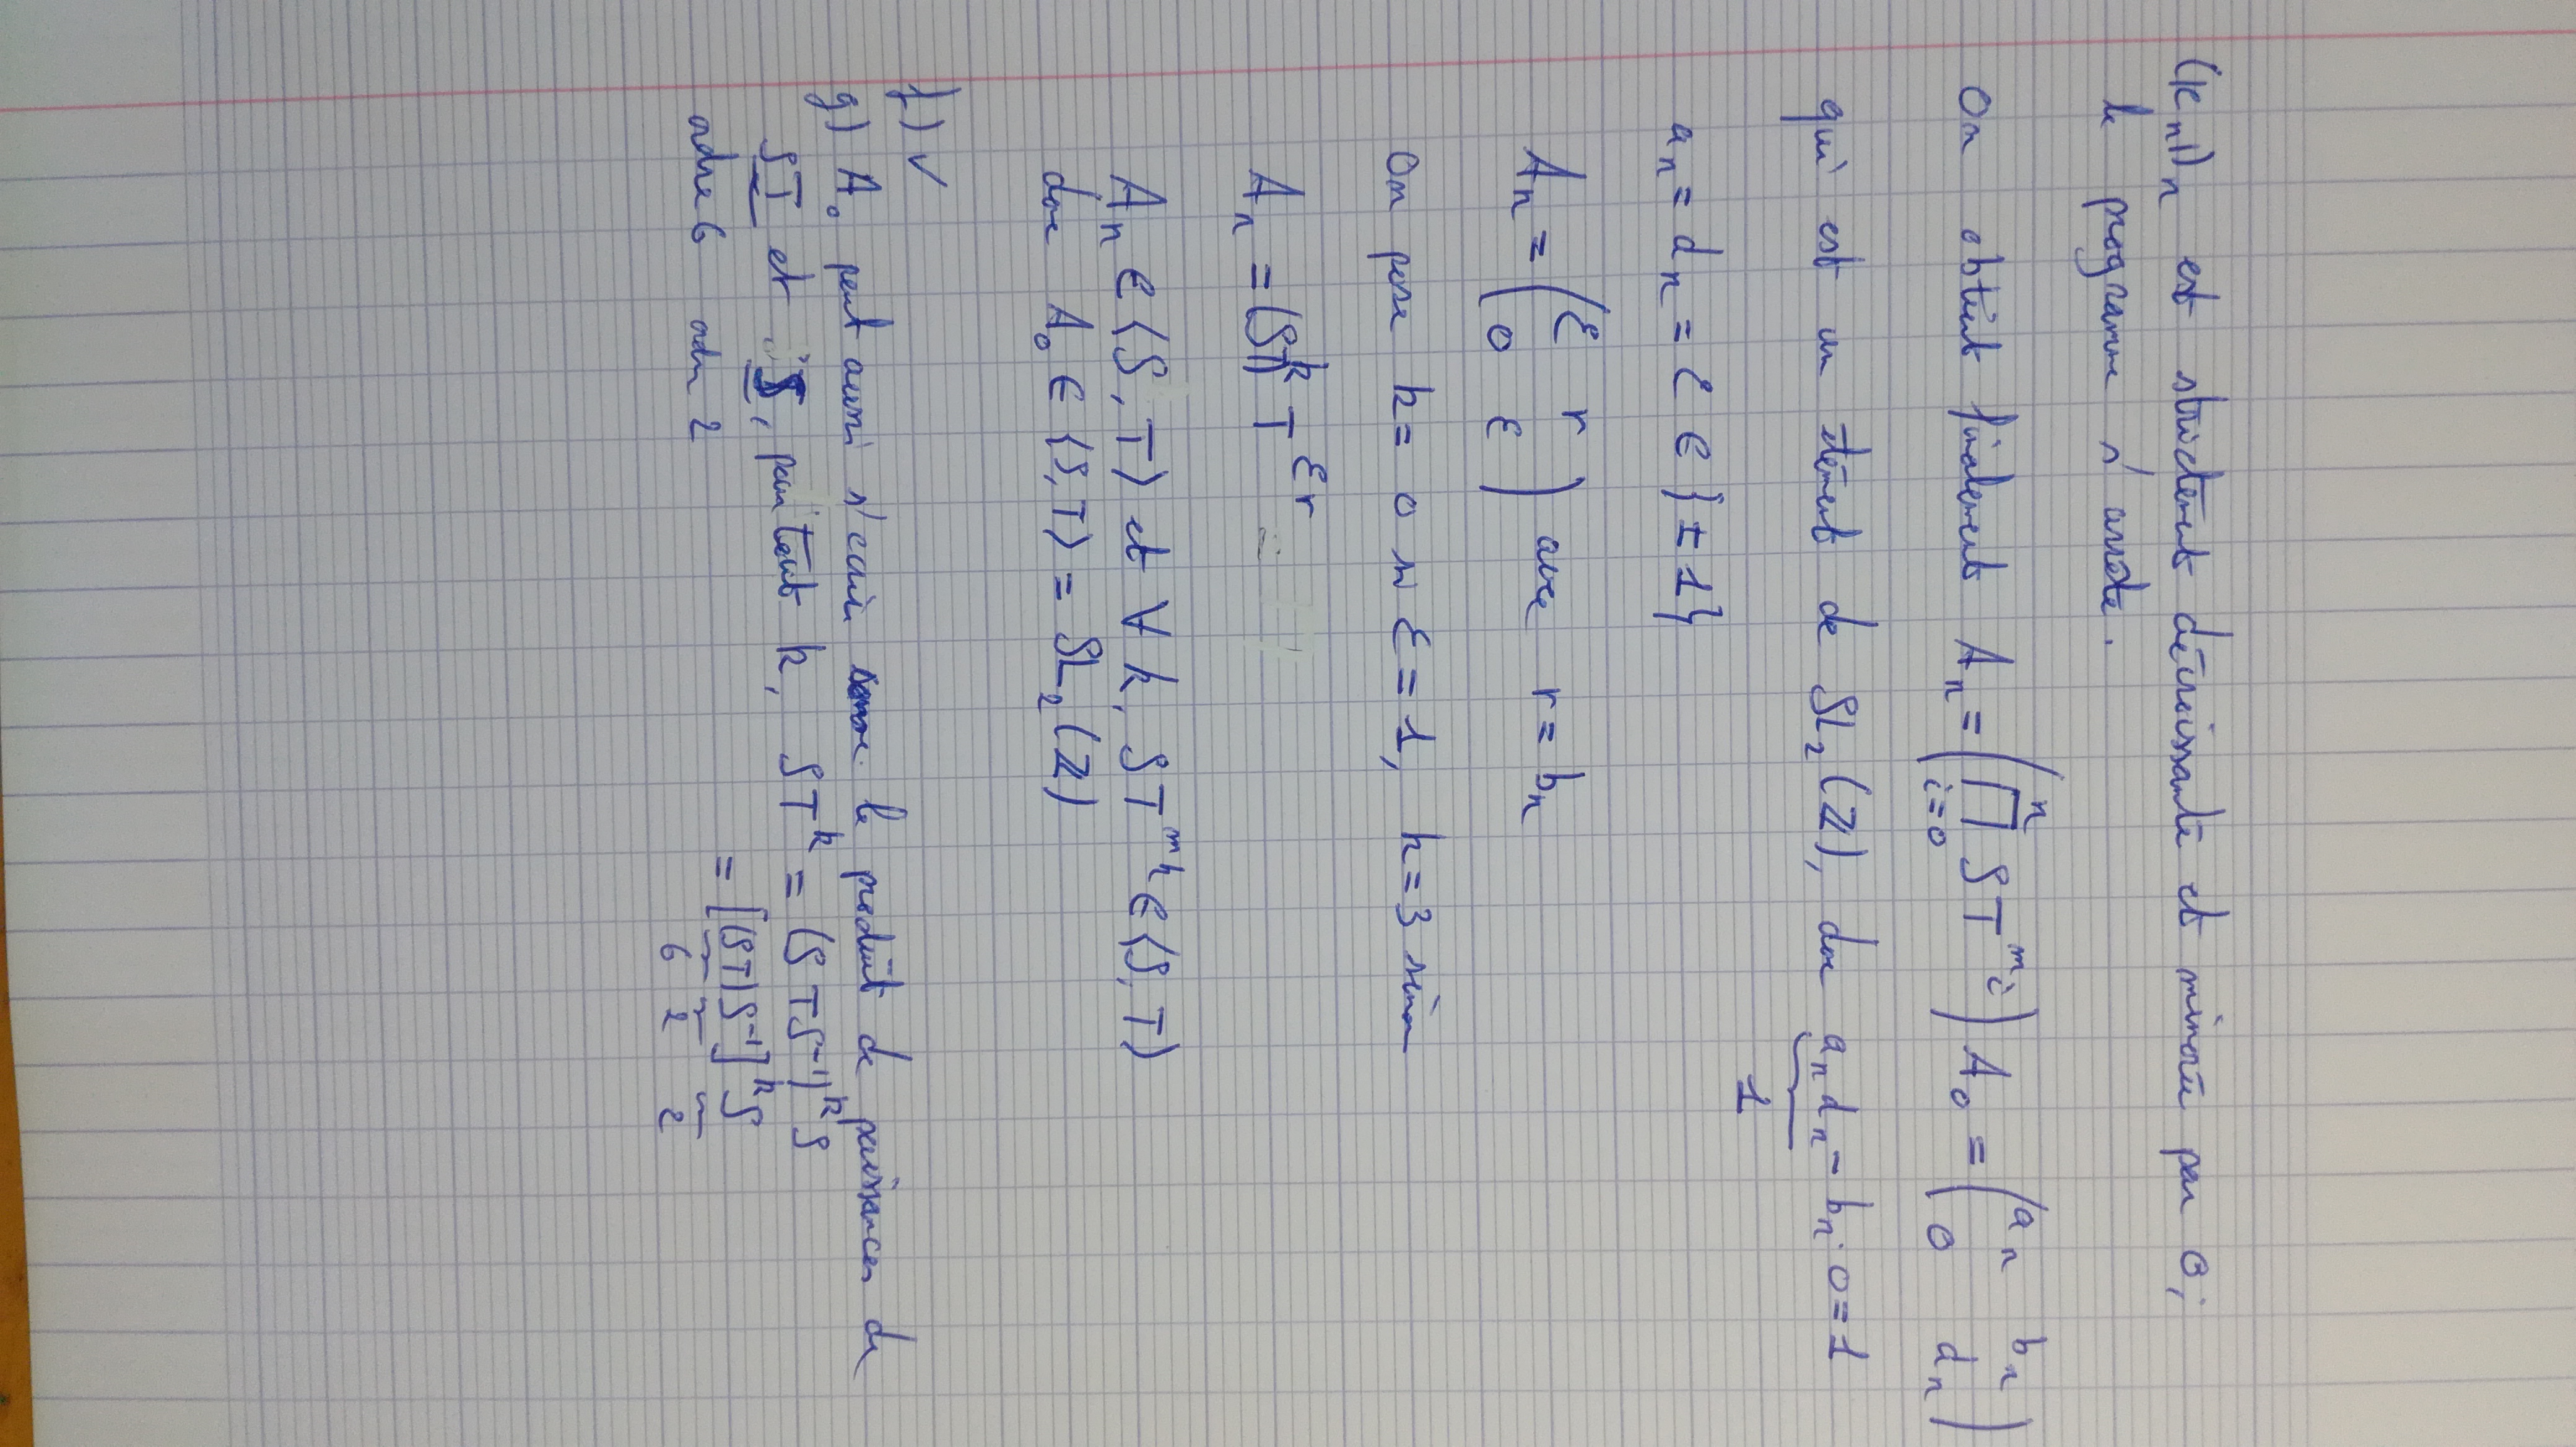 (|c_n|)_n est strictement décroissante et minorée par 0,
le programme s'arrête.
On obtient finalement A_n = (∏_{i=0}^{n} ST^{m_i}) A_0 = (a_n b_n
0 d_n)
qui est un élément de SL_2(Z), donc a_n d_n - b_n·0 = 1
1
a_n = d_n = ε ∈ {±1}
A_n = (ε r
0 ε) avec r = b_n
On pose k = 0 si ε = 1, k = 3 sinon
A_n = (ST)^k T^{εr}
A_n ∈ ⟨S, T⟩ et ∀ k, ST^{m_k} ∈ ⟨S, T⟩
donc A_0 ∈ ⟨S, T⟩ = SL_2(Z)
f) ✓
g) A_0 peut aussi s'écrire comme le produit de puissances de
ST et S, pour tout k, ST^k = (STS^{-1})^k S
ordre 6 ordre 2 = [(ST)S^{-1}]^k S
6 2 2